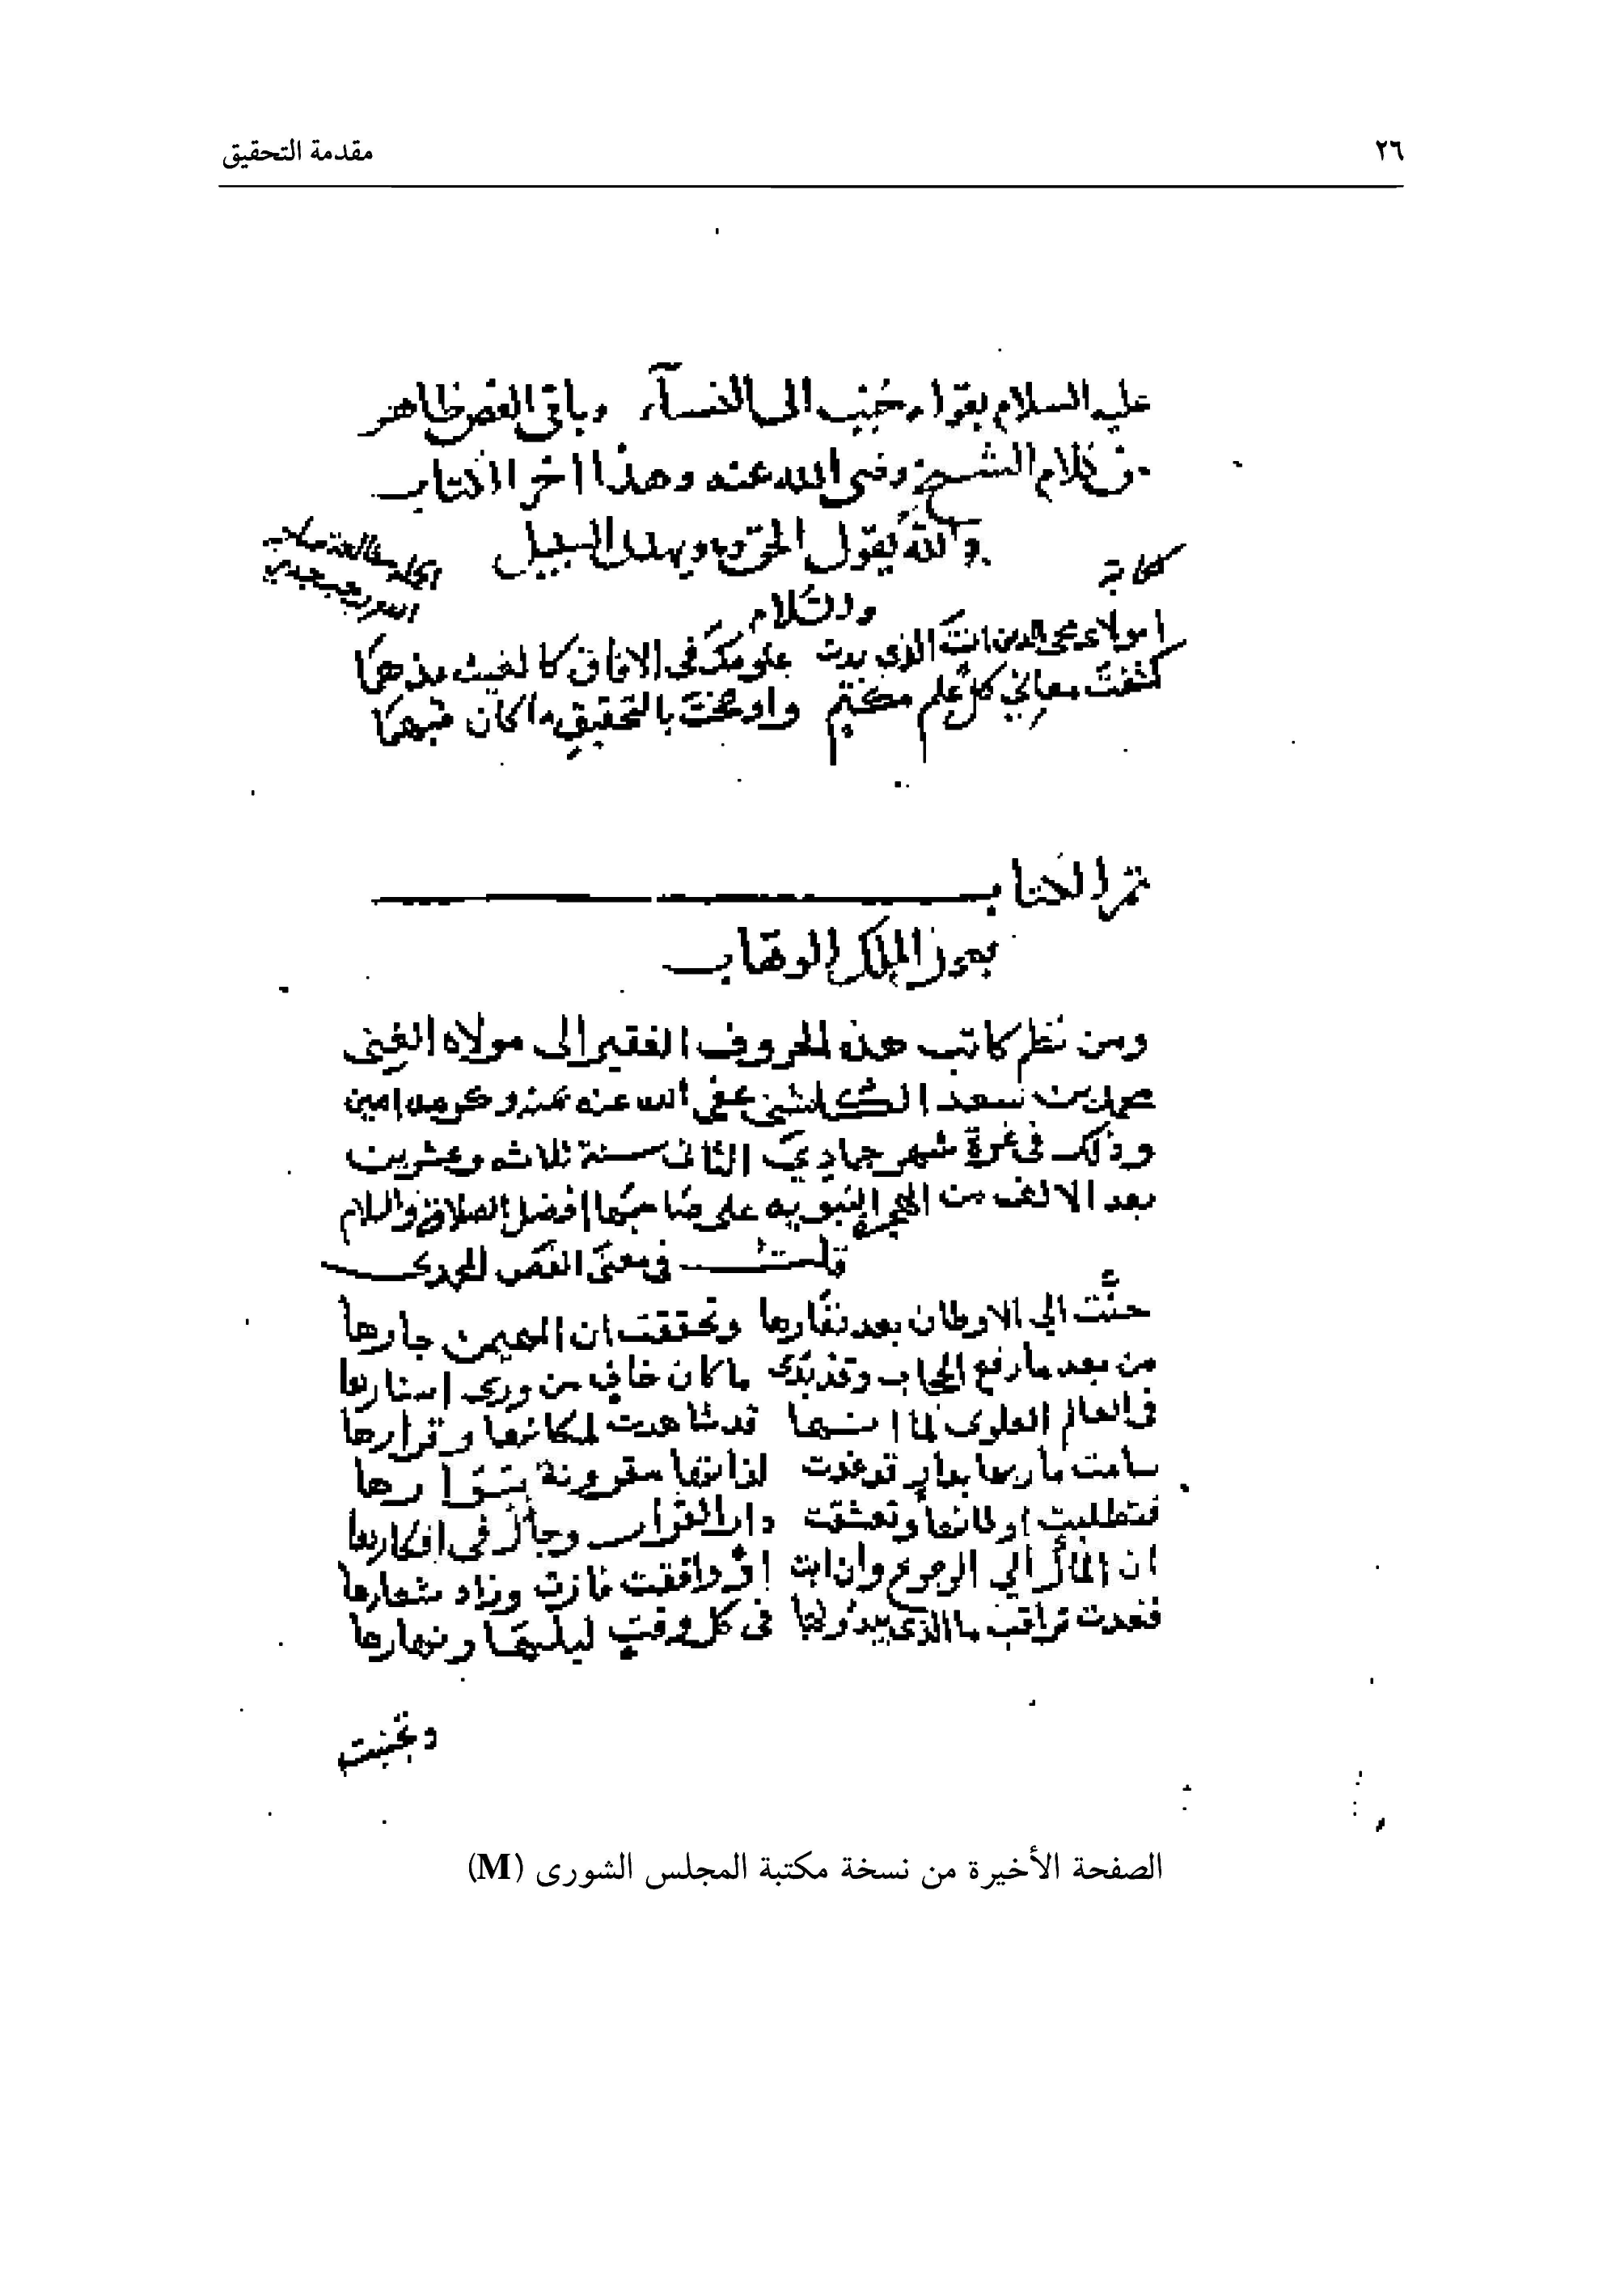 ٢٦
مقدمة التحقيق
عليه السلام بقوله حُبِّب الى النسآء وباقى الفص ظاهر
من كلام الشيخ رضى الله عنه وهذا اخر الكتاب
والله يقول الحق وهو يهدى السبيل
والسلام
لكاتبه
امولاى محى الدين انتَ الذى بدت علومكَ فى الافاق كالغيث مذ هما
كشفتَ معانى كل علم مكتم واوضحتَ بالتحقيق ما كان مبهما
تم الكتاب
بعون الملك الوهاب
ومن نظم كاتب هذه الحروف الفقير الى مولاه الغنى
بن سعد الكلشنى عفى الله عنه بمنه وكرمه امين
وذلك فى غرة شهر جمادى الثانى سنة ثلاثه وعشرين
بعد الالف من الهجرة النبويه على صاحبها افضل الصلاة والسلام
قلت فى معنى الفص المحمدى
حنّت الى الاوطان بعد نفارها وتحققت ان المهيمن جارها
من بعد ما رفع الحجاب وقد بدى ما كان خاف من ورى استارها
فى العالم العلوى لما انها قد شاهدت لمكانها وقرارها
فتطلبت اوطانها وتعشقت دار القرار وجال فى افكارها
ان المآل الى الرجوع وان ابت اذ وافقت مازت وزاد شعارها
فغدت تراقب ما الذى يبدو لها فى كل وقت ليلها ونهارها
وتجنبت
الصفحة الأخيرة من نسخة مكتبة المجلس الشورى (M)